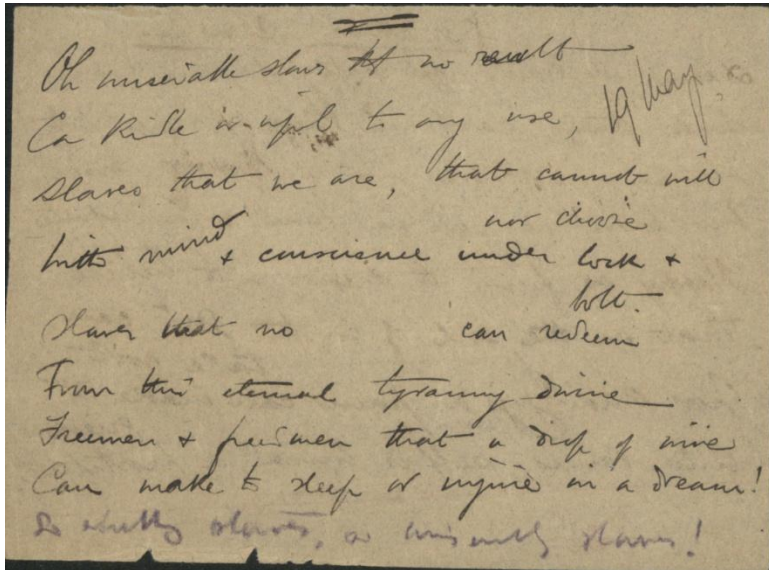 Oh miserable slaves no revolt
Can kindle or to any use,
19 May
slaves that we are, that cannot will
nor choose
With mind & conscience under lock &
bolt.
Slaves that no can redeem
From this eternal tyranny divine
Freemen & that a drop of wine
Can make to sleep or in a dream!
So slaves, so slaves!